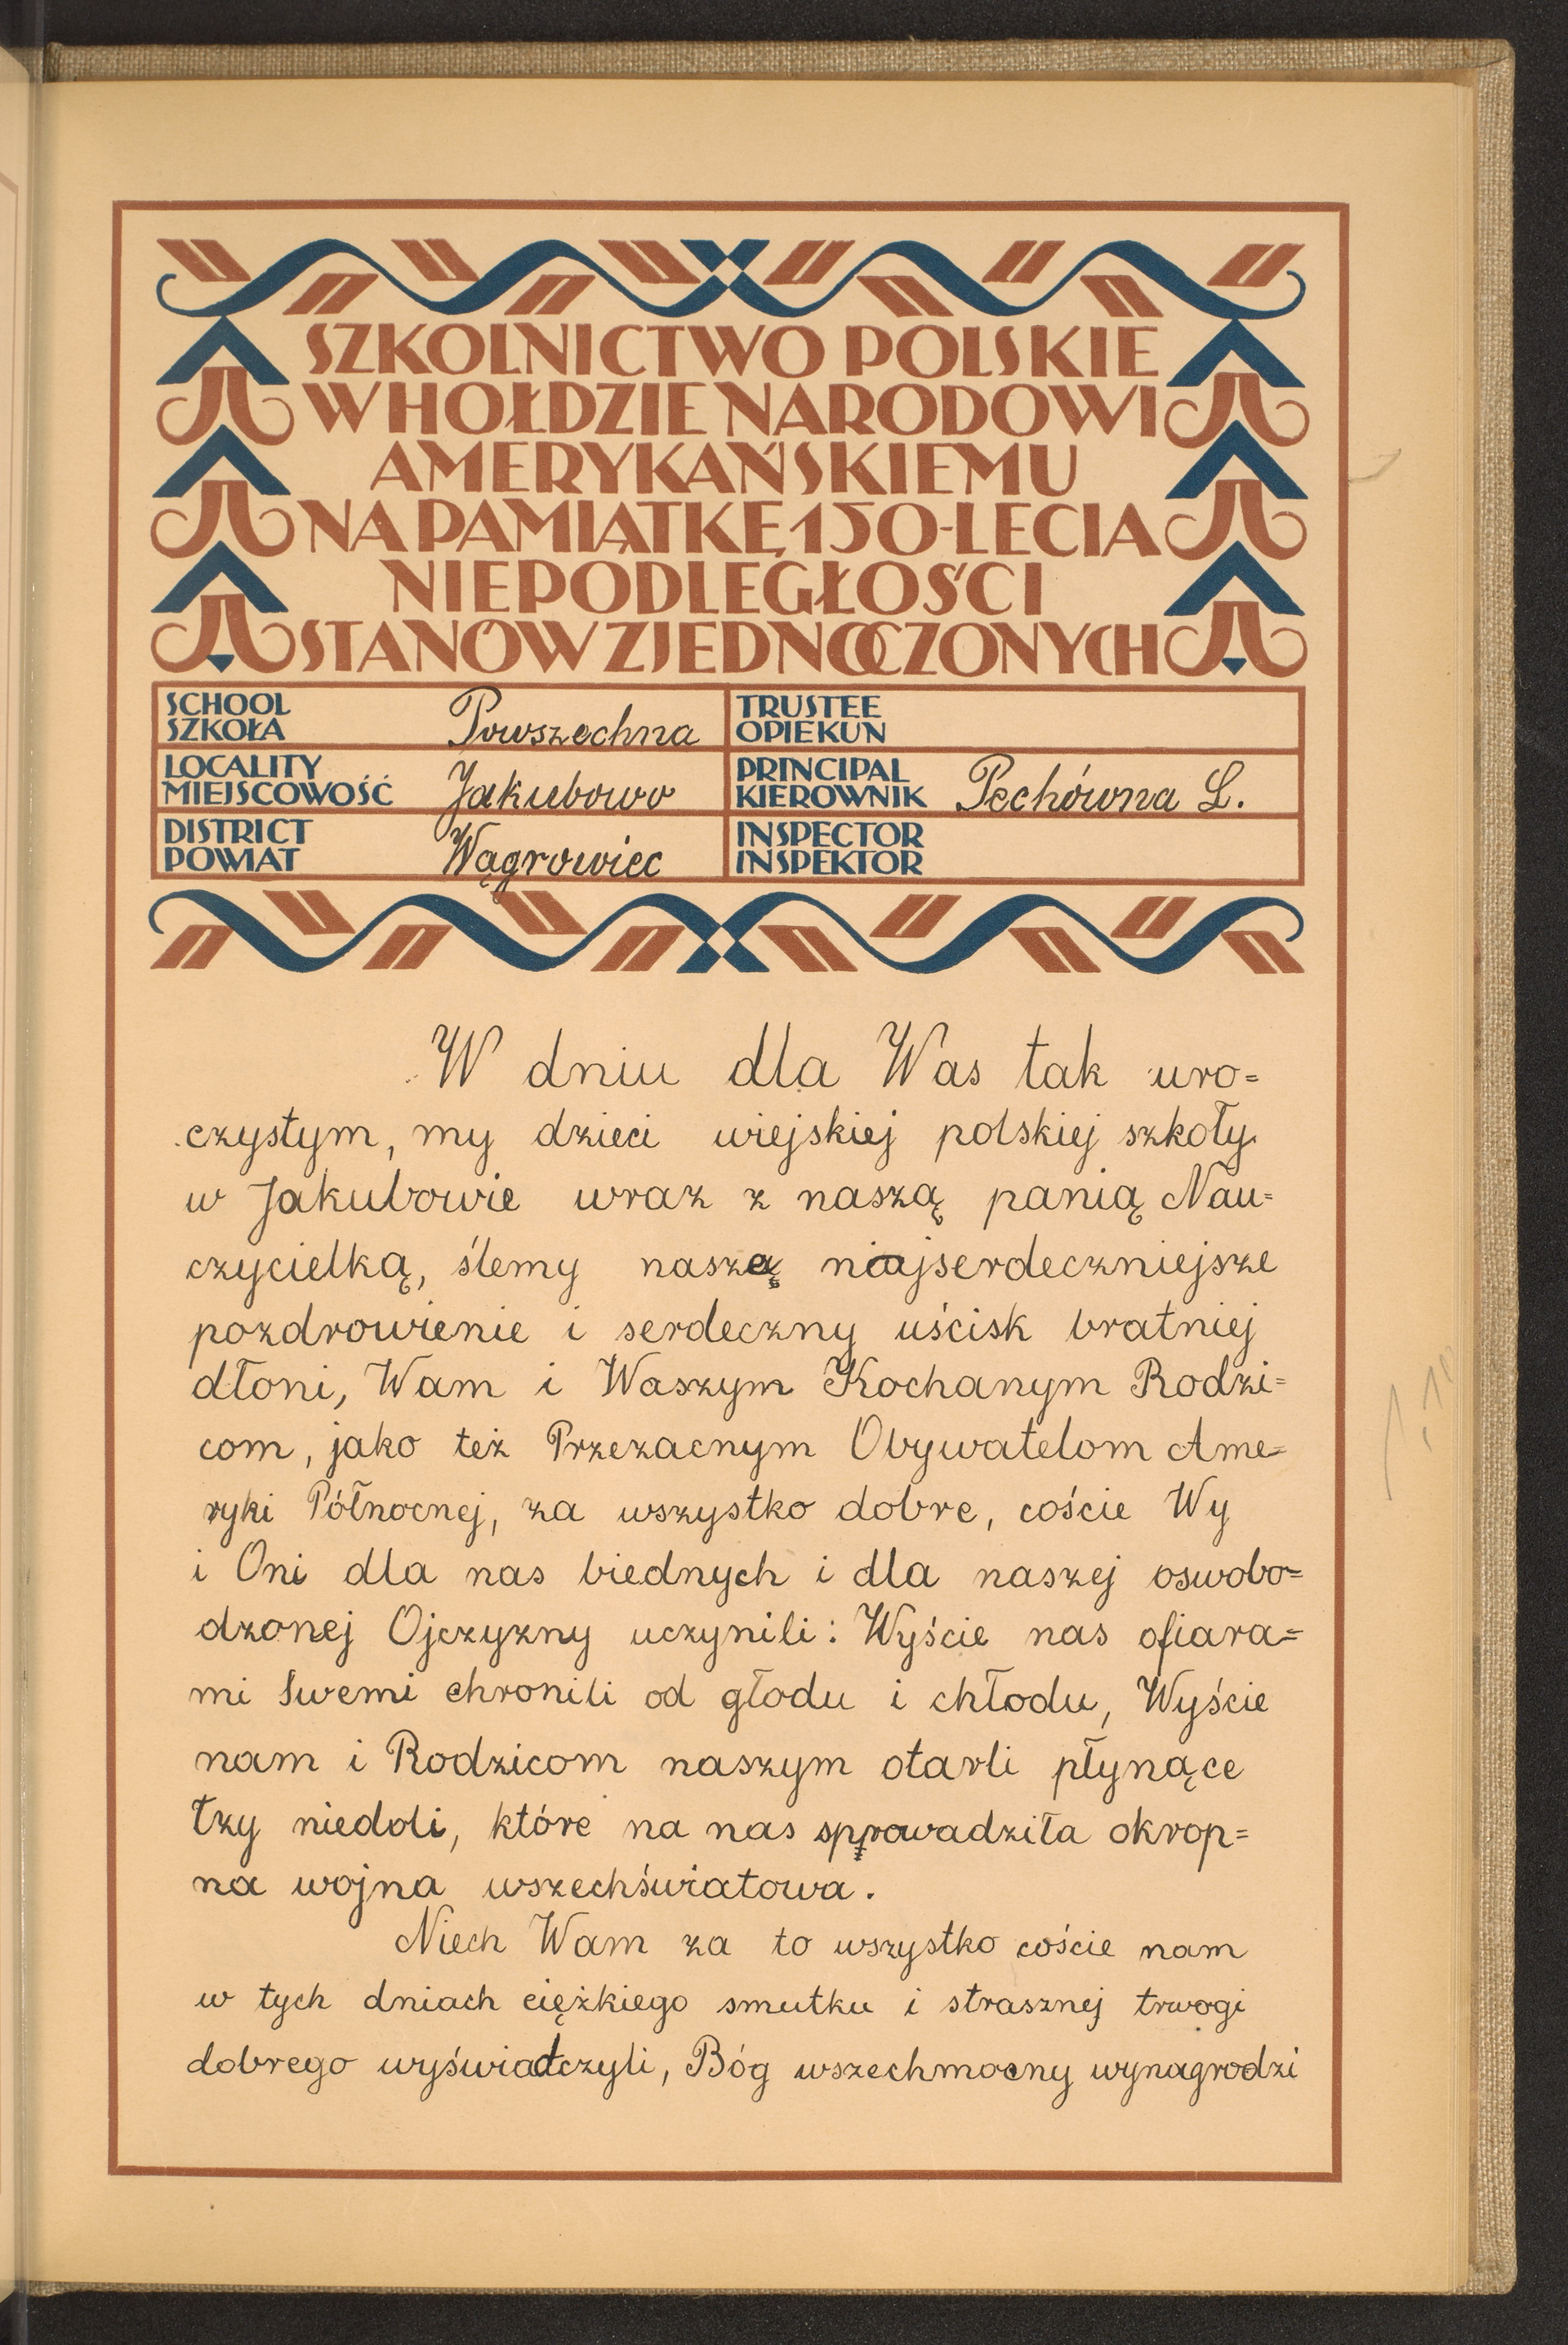 SZKOLNICTWO POLSKIE
W HOŁDZIE NARODOWI
AMERYKAŃSKIEMU
NA PAMIĄTKĘ 150-LECIA
NIEPODLEGŁOŚCI
STANÓW ZJEDNOCZONYCH
SCHOOL
SZKOŁA
Powszechna
TRUSTEE
OPIEKUN
LOCALITY
MIEJSCOWOŚĆ
Jakubowo
PRINCIPAL
KIEROWNIK
Pechówna L.
DISTRICT
POWIAT
Wągrowiec
INSPECTOR
INSPEKTOR
W dniu dla Was tak uro=
czystym, my dzieci wiejskiej polskiej szkoły
w Jakubowie wraz z naszą panią Nau=
czycielką, ślemy naszę najserdeczniejsze
pozdrowienie i serdeczny uścisk bratniej
dłoni, Wam i Waszym Kochanym Rodzi=
com, jako też Przezacnym Obywatelom Ame=
ryki Północnej, za wszystko dobre, coście Wy
i Oni dla nas biednych i dla naszej oswobo=
dzonej Ojczyzny uczynili: Wyście nas ofiara=
mi Swemi chronili od głodu i chłodu, Wyście
nam i Rodzicom naszym otarli płynące
łzy niedoli, które na nas sprowadziła okrop=
na wojna wszechświatowa.
Niech Wam za to wszystko coście nam
w tych dniach ciężkiego smutku i strasznej trwogi
dobrego wyświadczyli, Bóg wszechmocny wynagrodzi